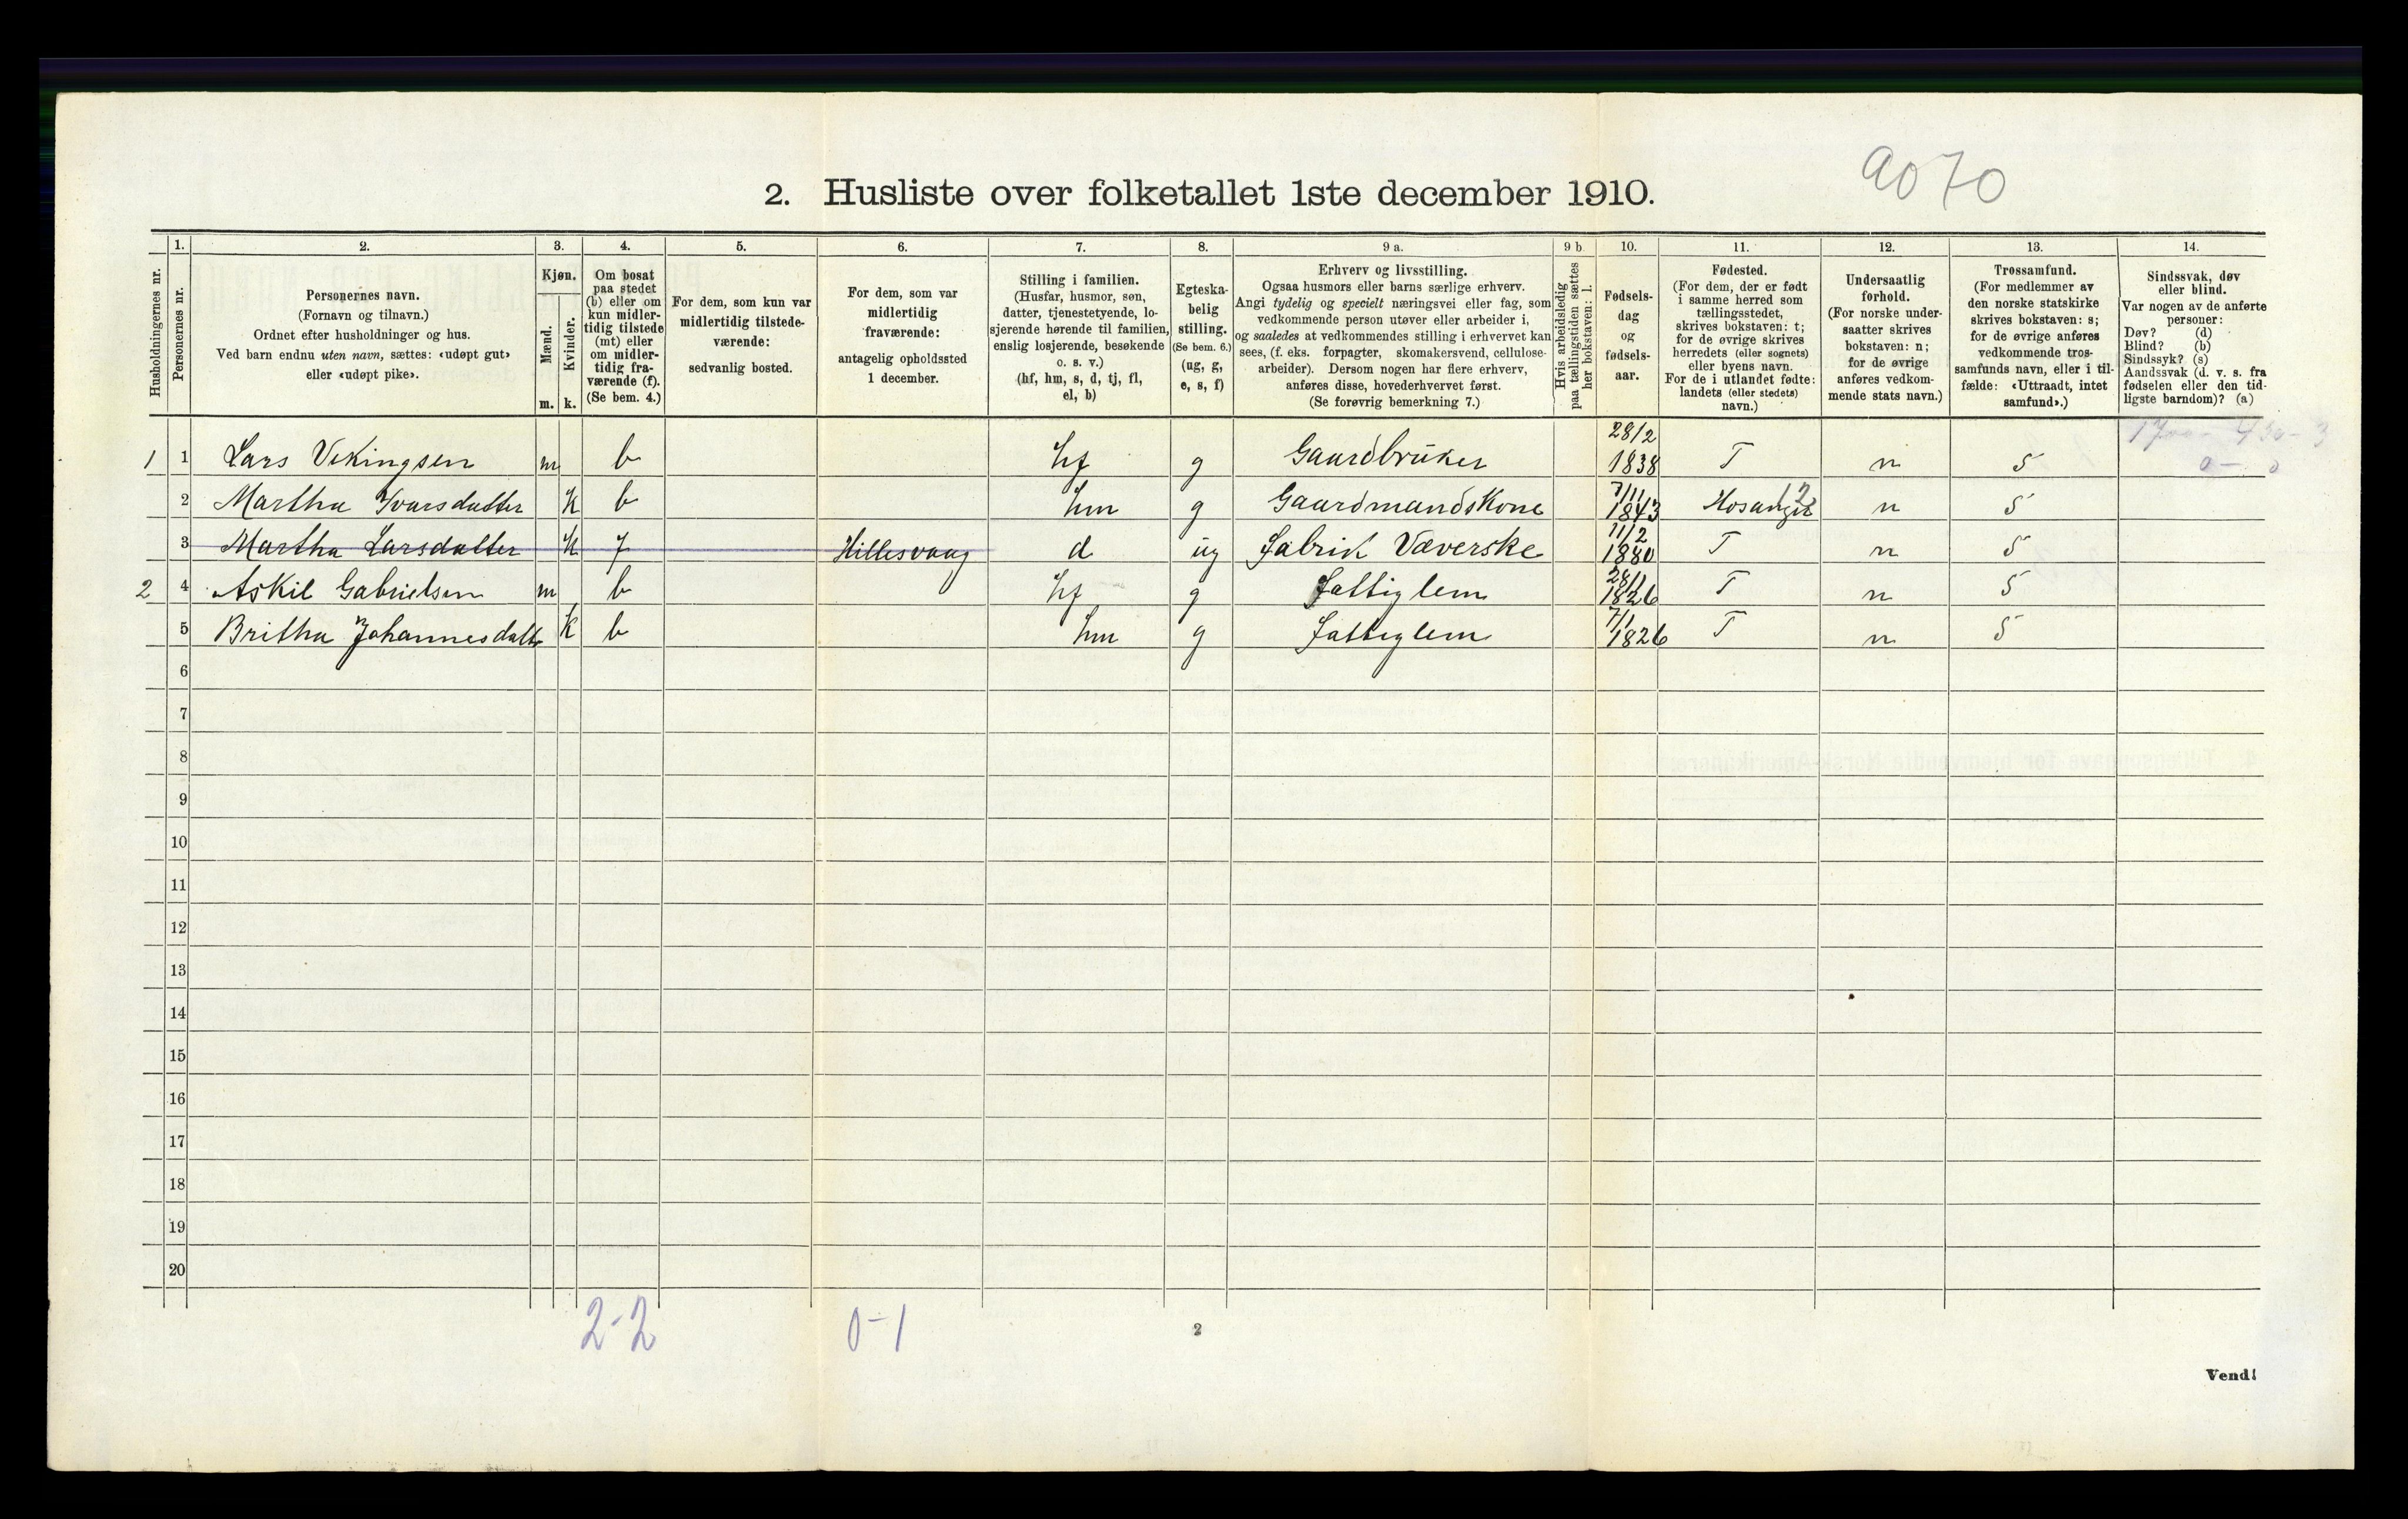 9070
2. Husliste over folketallet 1ste december 1910.
1. 2. 3. 4. 5. 6. 7. 8. 9 a. 9 b. 10. 11. 12. 13. 14.
Husholdningernes nr.
Personernes nr.
Personernes navn.
(Fornavn og tilnavn.)
Ordnet efter husholdninger og hus.
Ved barn endnu uten navn, sættes: «udøpt gut»
eller «udøpt pike».
Kjøn.
Mænd.
Kvinder.
m. k.
Om bosat
paa stedet
(b) eller om
kun midler-
tidig tilstede
(mt) eller
om midler-
tidig fra-
værende (f).
(Se bem. 4.)
For dem, som kun var
midlertidig tilstede-
værende:
sedvanlig bosted.
For dem, som var
midlertidig
fraværende:
antagelig opholdssted
1 december.
Stilling i familien.
(Husfar, husmor, søn,
datter, tjenestetyende, lo-
sjerende hørende til familien,
enslig losjerende, besøkende
o. s. v.)
(hf, hm, s, d, tj, fl,
el, b)
Egteska-
belig
stilling.
(Se bem. 6.)
(ug, g,
e, s, f)
Erhverv og livsstilling.
Ogsaa husmors eller barns særlige erhverv.
Angi tydelig og specielt næringsvei eller fag, som
vedkommende person utøver eller arbeider i,
og saaledes at vedkommendes stilling i erhvervet kan
sees, (f. eks. forpagter, skomakersvend, cellulose-
arbeider). Dersom nogen har flere erhverv,
anføres disse, hovederhvervet først.
(Se forøvrig bemerkning 7.)
Hvis arbeidsledig
paa tællingstiden sættes
her bokstaven: l.
Fødsels-
dag
og
fødsels-
aar.
Fødested.
(For dem, der er født
i samme herred som
tællingsstedet,
skrives bokstaven: t;
for de øvrige skrives
herredets (eller sognets)
eller byens navn.
For de i utlandet fødte:
landets (eller stedets)
navn.)
Undersaatlig
forhold.
(For norske under-
saatter skrives
bokstaven: n;
for de øvrige
anføres vedkom-
mende stats navn.)
Trossamfund.
(For medlemmer av
den norske statskirke
skrives bokstaven: s;
for de øvrige anføres
vedkommende tros-
samfunds navn, eller i til-
fælde: «Uttraadt, intet
samfund».)
Sindssvak, døv
eller blind.
Var nogen av de anførte
personer:
Døv? (d)
Blind? (b)
Sindssyk? (s)
Aandssvak (d. v. s. fra
fødselen eller den tid-
ligste barndom)? (a)
1 1 Lars Vikingsen m b hf g Gaardbruker 28/2 1838 T n S
2 Martha Ivarsdatter K b hm g GaardmandsKone 7/11 1843 Hosanger 12 n S
3 Martha Larsdatter K f Hillesvaag d ug Fabrik Væverske 11/2 1880 T n S
2 4 Askil Gabrielsen m b hf g Fattiglem 28/1 1826 T n S
5 Britha Johannesdatt K b hm g Fattiglem 7/1 1826 T n S
6
7
8
9
10
11
12
13
14
15
16
17
18
19
20
2-2 0-1
2
Vend!